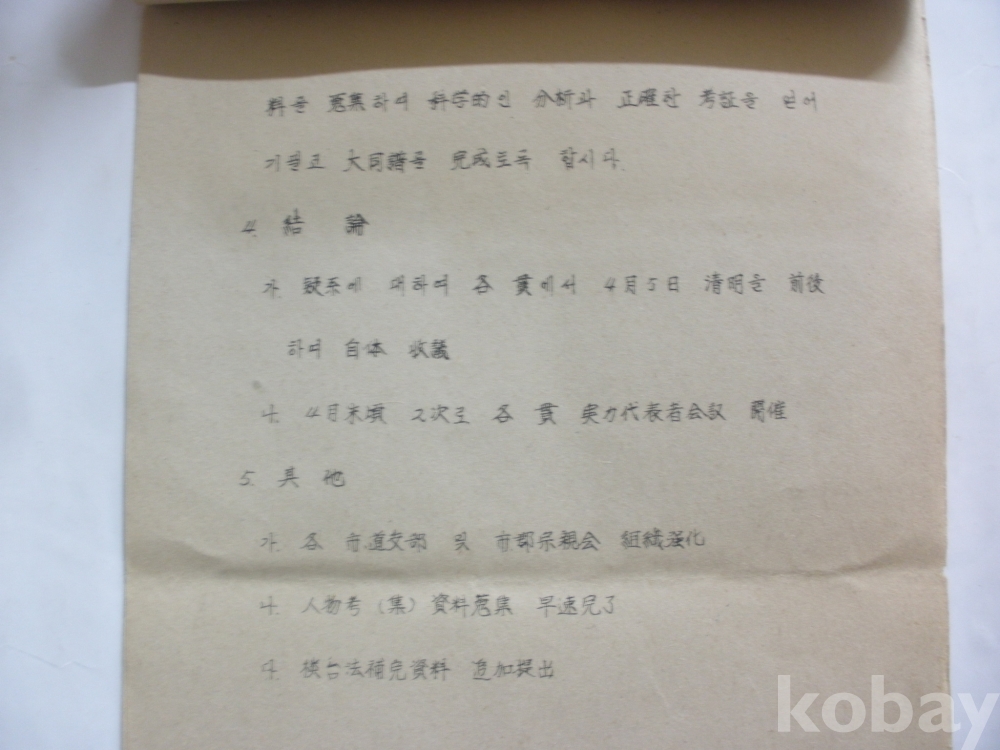 料를 蒐集하여 科学的인 分析과 正確한 考証을 얻어
기필코 大同譜를 完成토록 합시다.
4. 結 論
가. 疑系에 대하여 各 貫에서 4月5日 清明을 前後
하여 自体 收議
나. 4月末頃 2次로 各 貫 実力代表者会议 開催
5. 其 他
가. 各 市道支部 및 市郡宗親会 組織强化
나. 人物考 (集) 資料蒐集 早速完了
다. 横台法補完資料 追加提出
kobay